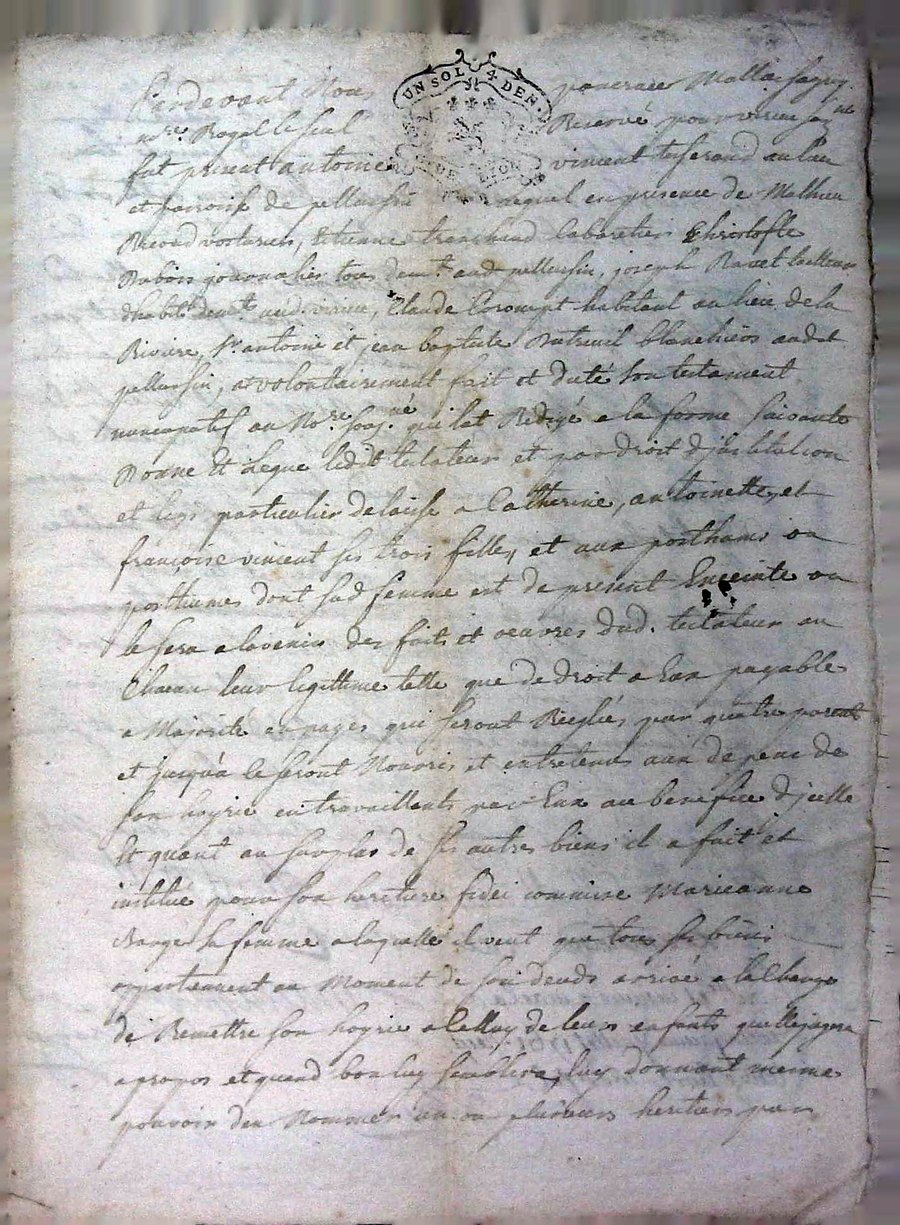 UN SOL 4 DEN.
DE LYON
Pardevant Nous
nore. Royal le seul Reservé pour virieu
fut présent antoine vincent tisserand au lieu
et parroisse de pellussin lequel en présence de Mathieu
voiturier, Etienne cabaretier Christofle
Dubois journalier tous demt. aud pellussin, joseph Ravet
dhabitt. demt. aud. virieu, Claude Corompt habitant au lieu de la
Riviere, sr. antoine et jean baptiste Dutreuil blanchiers audt
pellussin, a volontairement fait et dicté son testament
nuncupatif au Nore. sousné. qui lat Redigé a la forme suivante
Donne et legue ledit testateur et par droit djnstitution
et legs particulier delaisse a Catherine, antoinette, et
françoise vincent ses trois filles, et aux posthumes ou
posthumes dont sad femme est de present Enceinte ou
le sera a lavenir des faits et oeuvres dud. testateur au
Chacun leur legittime telle que de droit a Eux payable
a Majorité en payes qui seront Reglées par quatre parents
et jusqua ce seront Nourris et entretenus aux depens de
son hoyrie en travaillants par Eux au benefice djcelle
Et quant au surplus de ses autres biens il a fait et
institué pour son heritiere fidei commise Marieanne
sa femme a laquelle il veut que tous ses biens
appartiennent au Moment de son deceds arrivé a la Charge
de Remettre son hoyrie a celluy de leurs enfants quelle jugera
a propos et quand bon luy semblera, luy donnant meme
pouvoir den Nommer un ou plusieurs heritiers par